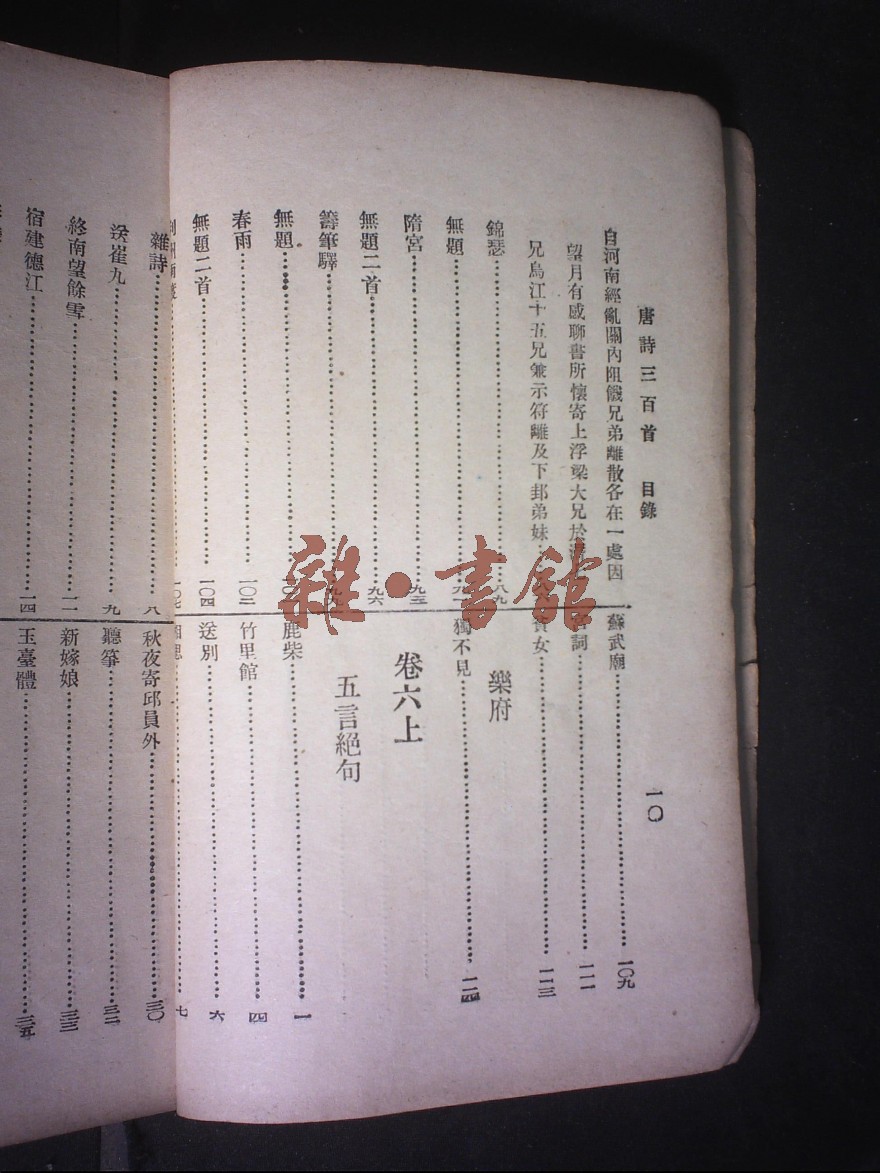 唐詩三百首 目錄
一〇
自河南經亂關內阻饑兄弟離散各在一處因
望月有感聊書所懷寄上浮梁大兄於
兄烏江十五兄兼示符離及下邽弟妹
錦瑟 八九
無題 九一
隋宮 九三
無題二首 九六
籌筆驛
無題
春雨 一〇二
無題二首 一〇四
一〇七
蘇武廟 一〇九
詞 一一一
貧女 一一三
樂府
獨不見 一一四
卷六上
五言絕句
鹿柴 一
竹里館 四
送別 六
七
雜詩 八
送崔九 九
終南望餘雪 一一
宿建德江 一四
秋夜寄邱員外 三〇
聽箏 三二
新嫁娘 三三
玉臺體 三五
雜·書館